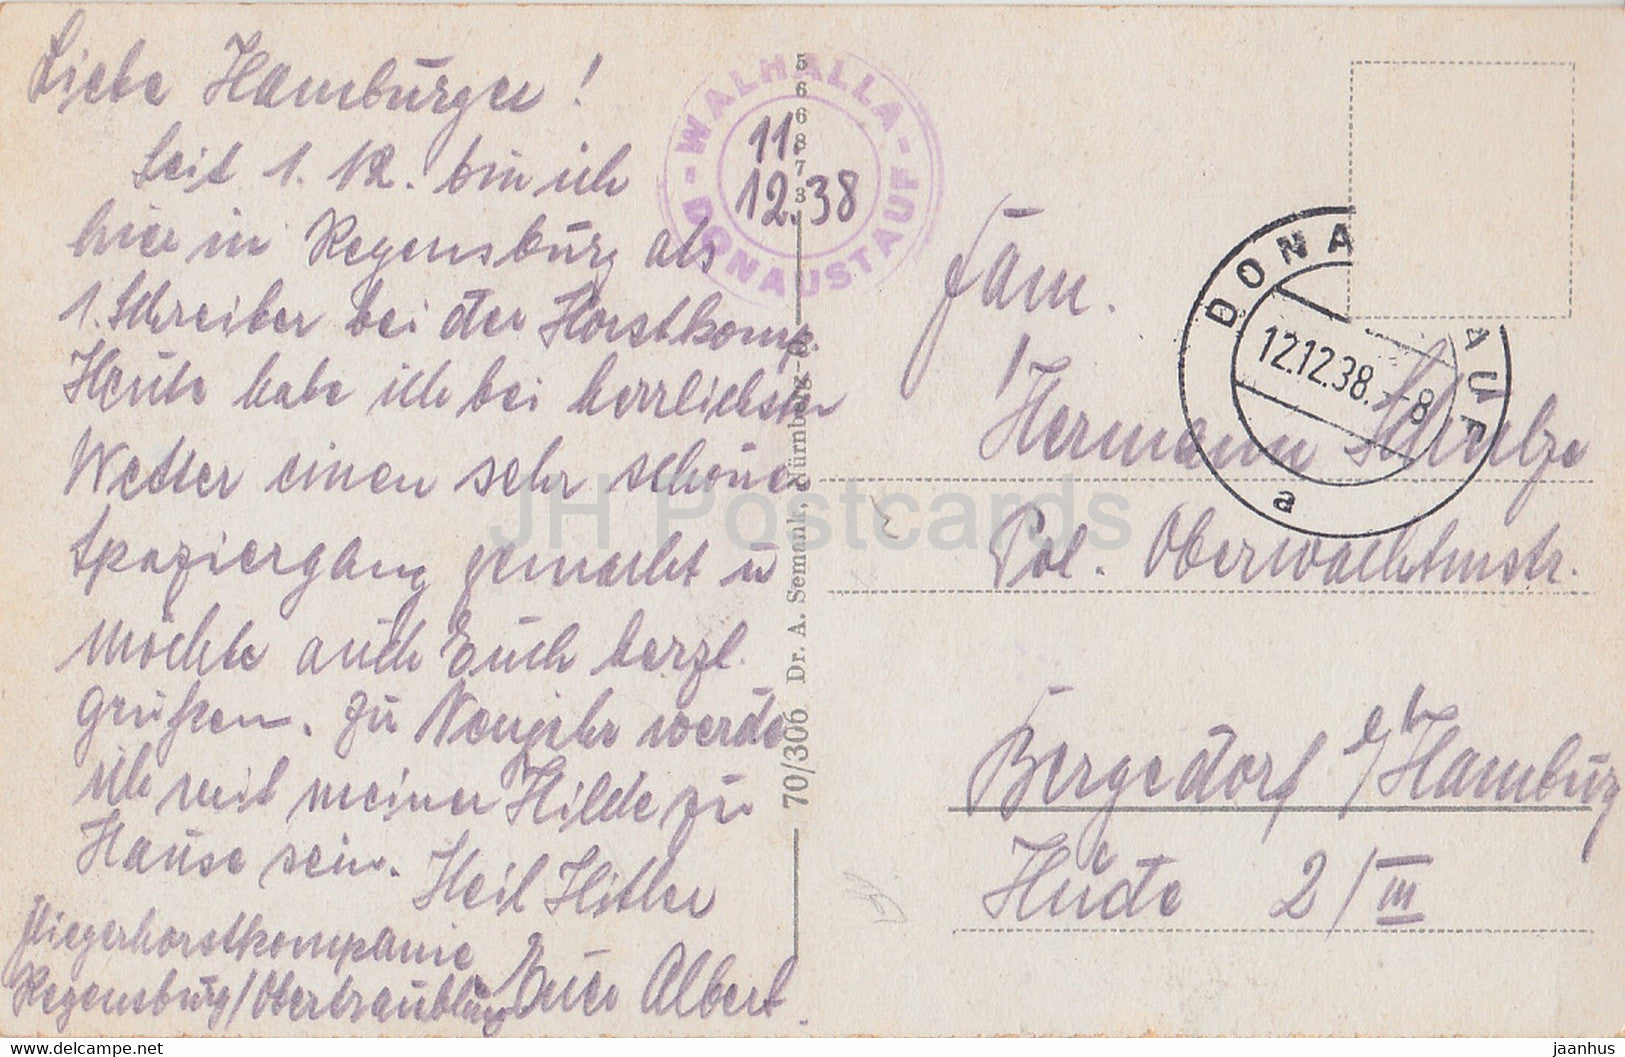 Liebe Hamburger!
Seit 1. 12. bin ich
hier in Regensburg als
1. Schreiber bei der Horstkomp.
Heute habe ich bei herrlichstem
Wetter einen sehr schönen
Spaziergang gemacht u
möchte auch Euch herzl.
grüßen. Zu Neujahr werde
ich mit meiner Hilde zu
Hause sein. Heil Hitler
Fliegerhorstkompanie
Regensburg/Obertraubling Euer Albert.
- WALHALLA - DONAUSTAUF
11.
12.38
566873
70/306 Dr. A. Semank, Nürnberg-O.
DONAUSTAUF
12.12.38.-8
a
Fam.
Hermann Schulze
Pol. Oberwachtmstr.
Bergedorf b/Hamburg
Hude 2/III
JH Postcards
DELCAMPE.NET
jaanhus